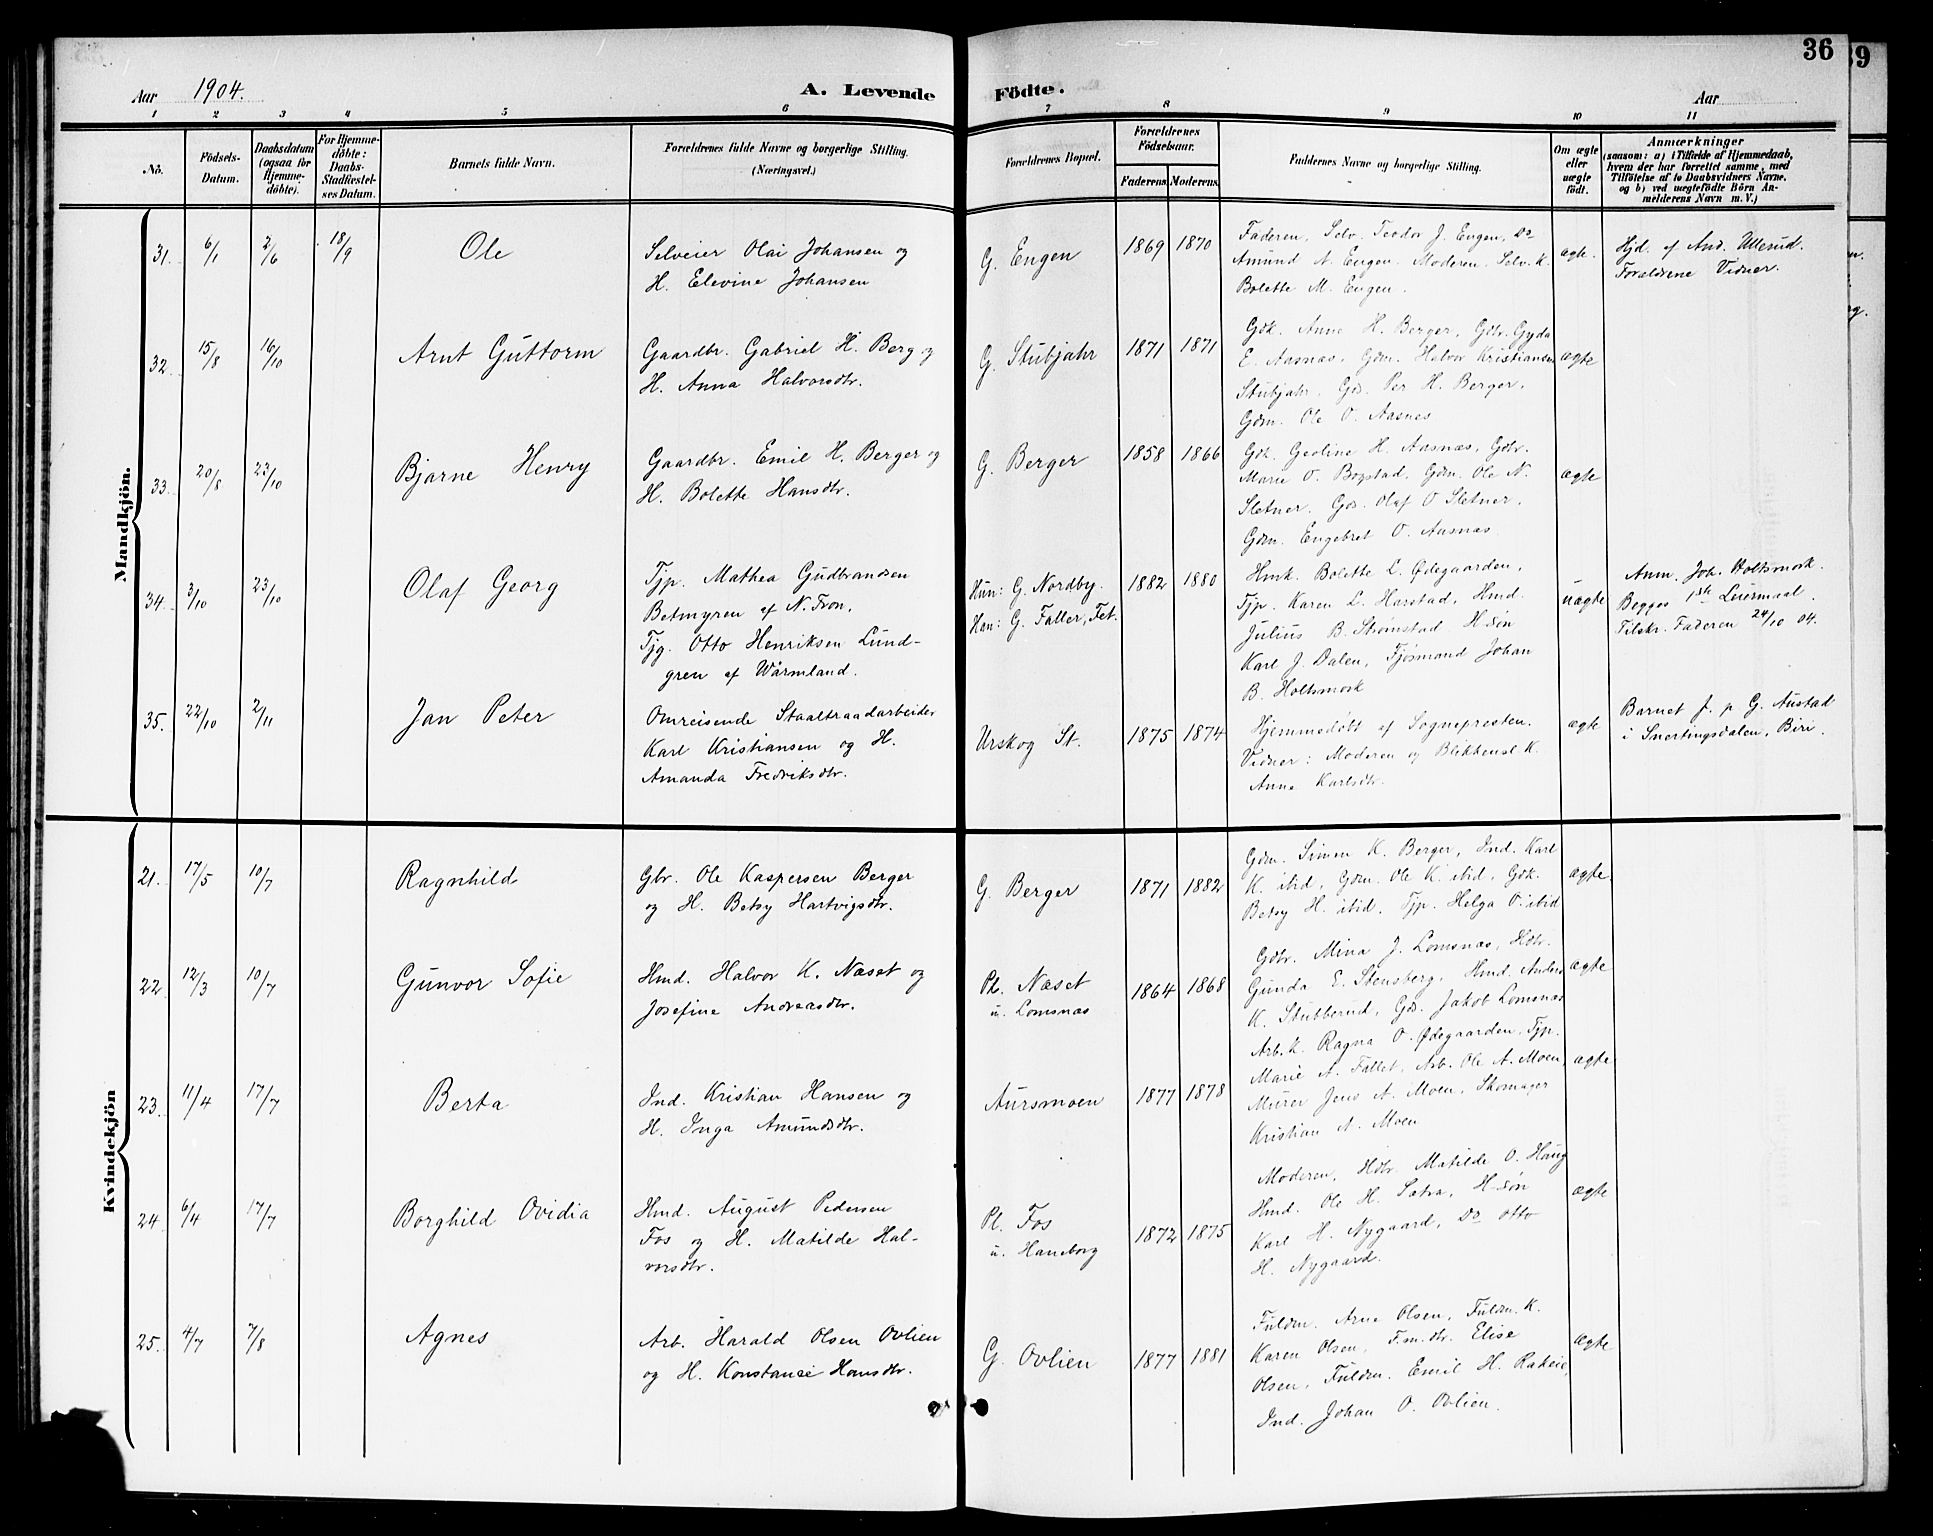 36
39
Aar 1904.
A. Levende Födte.
Aar
1 2 3 4 5 6 7 8 9 10 11
No.
Födsels-Datum.
Daabsdatum (ogsaa for Hjemme-döbte).
For Hjemme-döbte: Daabs-Stadfæstel-ses Datum.
Barnets fulde Navn.
Forældrenes fulde Navne og borgerlige Stilling. (Næringsvei.)
Forældrenes Bopæl.
Forældrenes Födselsaar.
Faderens. Moderens.
Faddernes Navne og borgerlige Stilling.
Om ægte eller uægte födt.
Anmærkninger
(saasom: a) i Tilfælde af Hjemmedaab,
hvem der har forrettet samme, med
Tilföielse af to Daabsvidners Navne.
og b) ved uægtefödte Börn An-
melderens Navn m. V.)
Mandkjön.
31. 6/1 2/6 18/9 Ole
Selveier Olai Johansen og
H. Elevine Johansen
G. Engen 1869 1870
Faderen, Selv. Teodor J. Engen, Do
Amund N. Engen. Moderen. Selv. K.
Bolette M. Engen.
ægte.
Hjd. af And. Ullerud.
Forældrene Vidner.
32. 15/8 16/10 Arnt Guttorm
Gaardbr. Gabriel H. Berg og
H. Anna Halvorsdtr.
G. Stubjahr 1871 1871
Gdk. Anne H. Berger, Gdbr. Gyda
E. Aasnæs, Gdm. Halvor Kristiansen
Stubjahr, Gds. Per H. Berger,
Gdm. Ole O. Aasnes
ægte
33. 20/8 23/10 Bjarne Henry
Gaardbr. Emil H. Berger og
H. Bolette Hansdtr.
G. Berger 1858 1866
Gdk. Geoline H. Aasnæs, Gdbr.
Marie O. Bogstad, Gdm. Ole N.
Sletner. Gds. Olaf O Sletner.
Gdm. Engebret O. Aasnæs.
ægte
34. 3/10 23/10 Olaf Georg
Tjp. Mathea Gudbrandsen
Betmyren af N. Fron,
Tjg. Otto Henriksen Lund-
gren af Wärmland.
Hun: G. Nordby.
Han: G. Faller, Fet.
1882 1880
Hmk. Bolette L. Ødegaarden,
Tjp. Karen L. Harstad, Hmd.
Julius B. Strømstad H-søn
Karl J. Dalen, Fjøsmand Johan
B. Holtsmork
uægte
Anm. Joh. Holtsmork.
Begges 1ste Leiermaal.
Tilskr. Faderen 24/10 04.
35. 22/10 2/11 Jan Peter
Omreisende Staaltraadarbeider
Karl Kristiansen og H.
Amanda Fredriksdtr.
Urskog St. 1875 1874
Hjemmedøbt af Sognepresten.
Vidner: Moderen og Blikkensl. K.
Anne Karlsdtr.
ægte
Barnet f. p G. Austad
i Snertingsdalen, Biri.
Kvindekjön
21. 17/5 10/7 Ragnhild
Gbr. Ole Kaspersen Berger
og H. Betsy Hartvigsdtr.
G. Berger 1871 1882
Gdm. Simen K. Berger, Ind. Karl
K. ibid, Gdm. Ole K. ibid, Gdk.
Betsy H. ibid. Tjp. Helga O. ibid
ægte
22 12/3 10/7 Gunvor Sofie
Hmd. Halvor K. Næset og
Josefine Andreasdtr.
Pl. Næset
u. Lomsnæs
1864 1868
Gdbr. Mina J. Lomsnæs, Hdtr.
Gunda E. Stensberg. Hmd. Anders
K. Stubberud, Gds. Jakob Lomsnæs
ægte
23. 11/4 17/7 Berta
Ind. Kristian Hansen og
H. Inga Amundsdtr.
Aursmoen 1877 1878
Arb. K. Ragna O. Ødegaarden, Tjp.
Marie A. Fallet, Arb. Ole A. Moen,
Murer Jens A. Moen, Skomager
Kristian A. Moen
ægte
24. 6/4 17/7 Borghild Ovidia
Hmd. August Pedersen
Fos og H. Matilde Hal-
vorsdtr.
Pl. Fos
u. Haneborg
1872 1875
Moderen, Hdtr. Matilde O. Haug
Hmd. Ole H. Sætra, H-søn
Karl H. Nygaard, Do Otto
H. Nygaard.
ægte
25. 4/7 7/8 Agnes
Arb. Harald Olsen Ovlien
og H. Konstance Hansdtr.
G. Ovlien 1877 1881
Fuldm. Arne Olsen, Fuldm. K.
Karen Olsen, F.m.dtr. Elise
Olsen, Fuldm. Emil H. Rakeie,
Ind. Johan O. Ovlien.
ægte